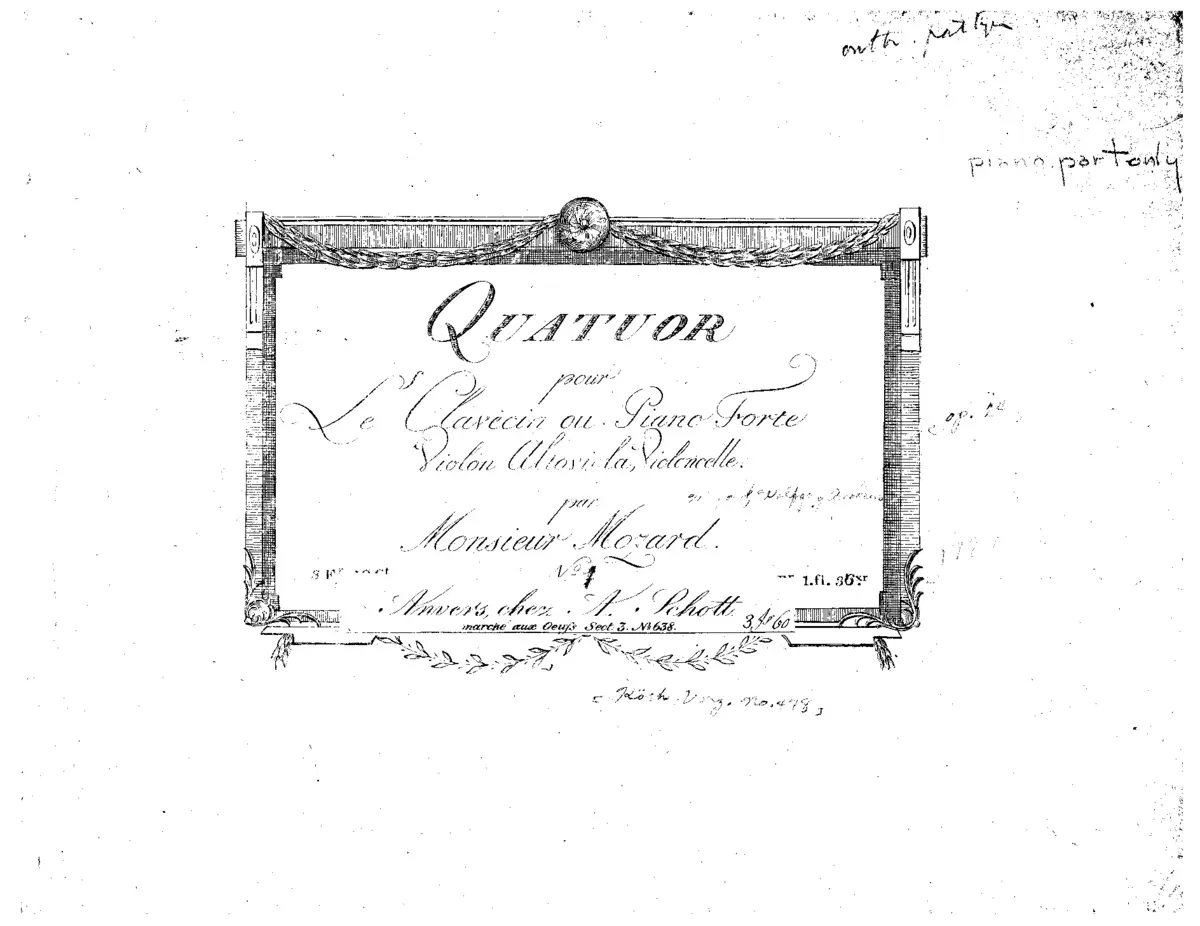 piano part only
QUATUOR
pour
Le Clavecin ou Piano Forte
Violon Alto viola, Violoncelle.
par
Monsieur Mozard.
No 1
1.fl. 36xr
Anvers, chez A. Schott
marché aux Oeufs Sect. 3. No 638.
3 fr 60
op.
No. 478